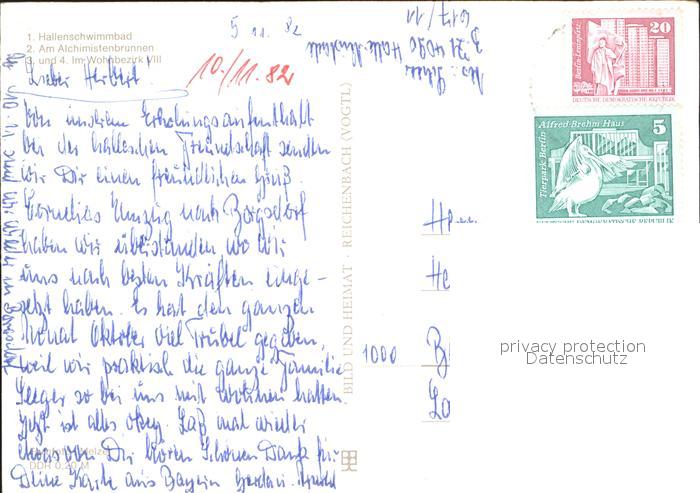 1. Hallenschwimmbad
2. Am Alchimistenbrunnen
3. und 4. Im Wohnbezirk VIII
5 11. 82
10/11.82
Lieber Herbert
Von unserem Erholungsaufenthalt
bei der halleschen Freundschaft senden
wir Dir einen freundlichen Gruß.
Cornelias Umzug nach Borgsdorf
haben wir überstanden wo wir
uns nach besten Kräften einge-
setzt haben. Es hat den ganzen
Monat Oktober viel Trubel gegeben,
weil wir praktisch die ganze Familie
Seeger so bei uns mit wohnen hatten
Jetzt ist alles okay. Laß mal wieder
etwas von Dir hören Schönen Dank für
Deine Karte aus Bayern
DDR 0,20 M
BILD UND HEIMAT · REICHENBACH (VOGTL)
4020 Halle-Neustadt
617/11
Berlin-Leninplatz
20
DEUTSCHE DEMOKRATISCHE REPUBLIK
Alfred-Brehm-Haus
5
Tierpark Berlin
DEUTSCHE DEMOKRATISCHE REPUBLIK
He
1000 B
Lo
privacy protection
Datenschutz